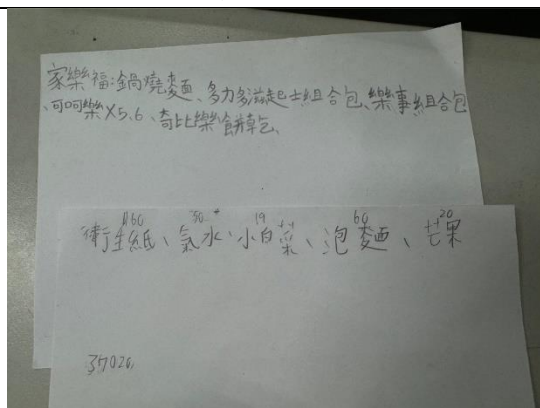 家樂福:鍋燒麵、多力多滋起士組合包、樂事組合包
、可呵樂X5.6、奇比樂餅乾包、
160 30 19 60 20
衛生紙、氣水、小白菜、泡麵、芒果
37026